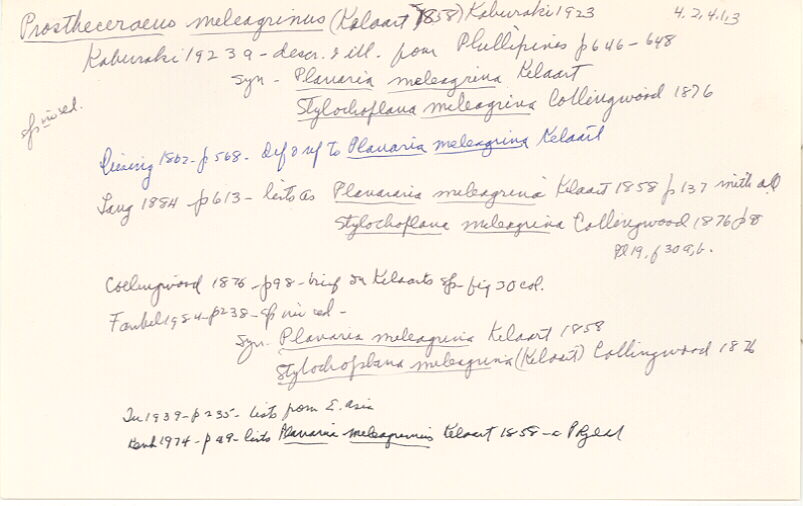 Prostheceraeus meleagrinus (Kelaart 1858) Kaburaki 1923 4.2.4.1.3
Kaburaki 1923 a - descr. & ill. from Phillipines p 646-648
Syn - Planaria meleagrina Kelaart
Stylochoplana meleagrina Collingwood 1876
sp inired.
Diesing 1862 - p 568 - Def & ref to Planaria meleagrina Kelaart
Lang 1884 p 613 - lists as Planaria meleagrina Kelaart 1858 p 137
Stylochoplana meleagrina Collingwood 1876 p
Pl 19, f 30 a, b.
Collingwood 1876 - p 98 - brief on Kelaarts sp - fig 30 col.
Faubel 1984 - p 238 - sp inired -
Syn. Planaria meleagrina Kelaart 1858
Stylochoplana meleagrina (Kelaart) Collingwood 1876
1939 - p 235 - lists from E. Asia
1974 - p 29 - lists Planaria Kelaart 1858 - a